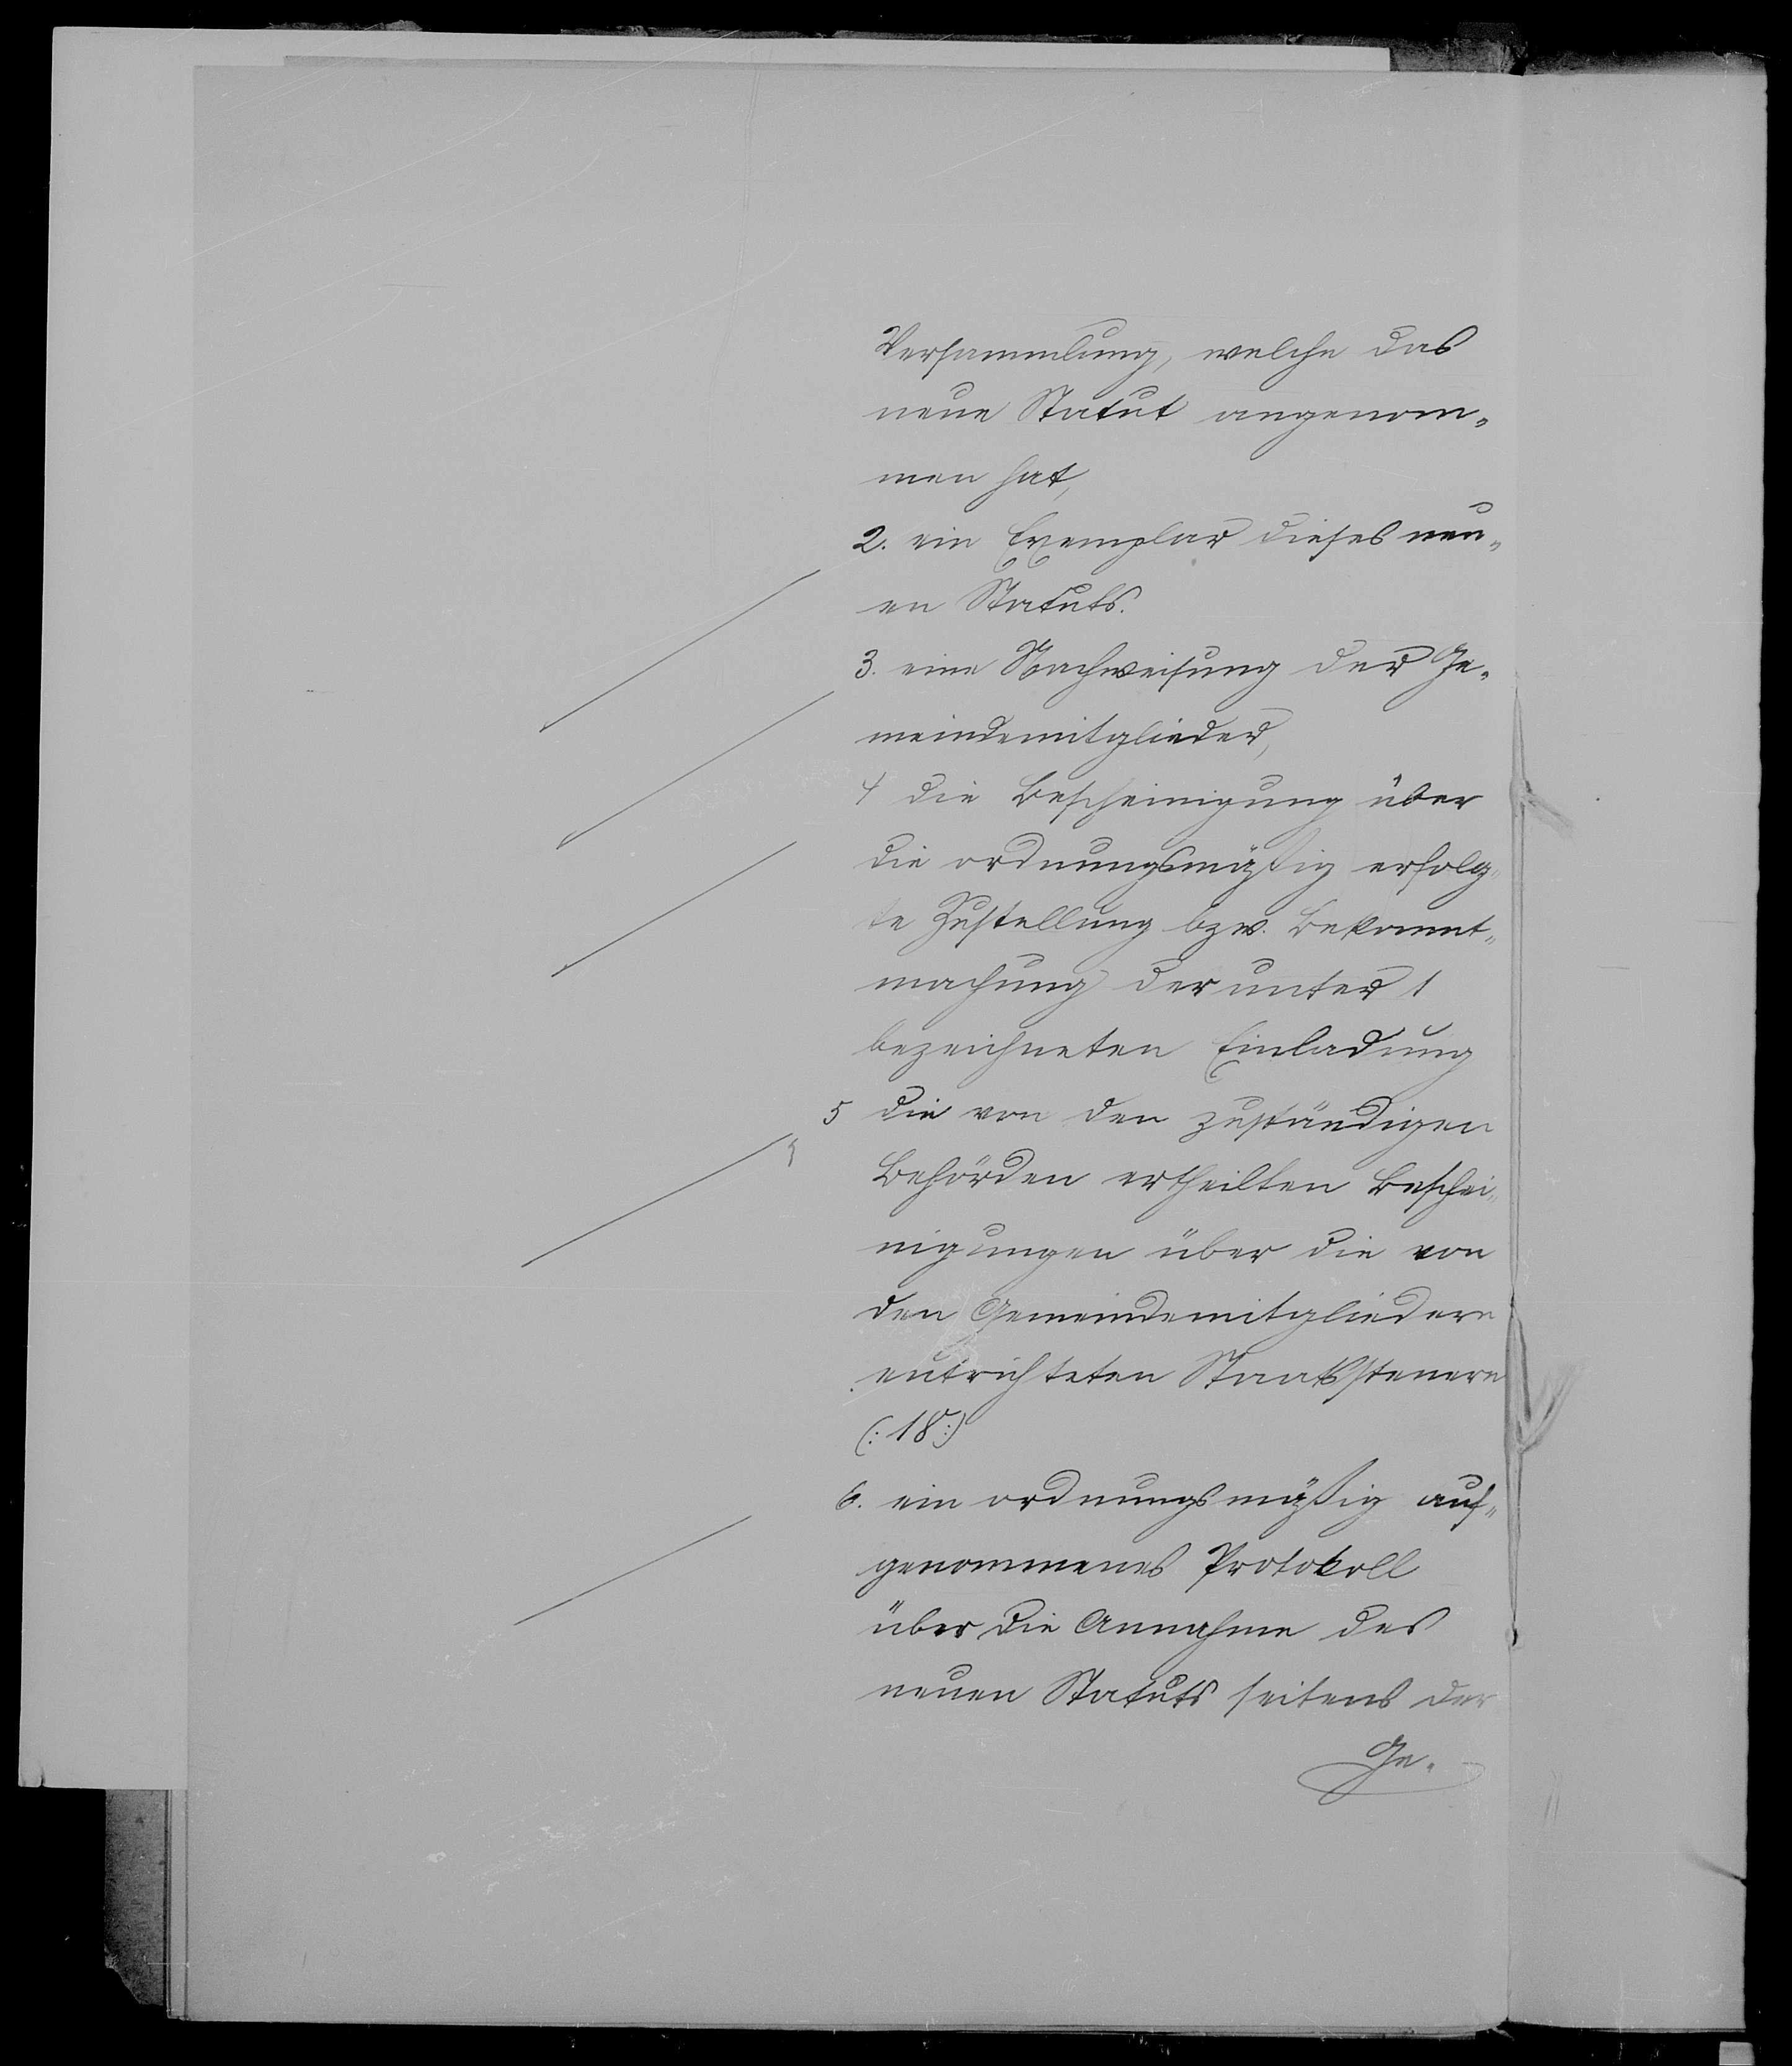 Versammlung, welche das
neue Statut angenom-
men hat,
2. ein Exemplar dieses neu-
en Statuts.
3. eine Nachweisung der Ge-
meindemitglieder,
4 die Bescheinigung über
die ordnungsmäßig erfolg-
te Zustellung bzw. Bekannt-
machung der unter 1
bezeichneten Einladung
5 die von den zuständigen
Behörden ertheilten Beschei-
nigungen über die von
den Gemeindemitgliedern
entrichteten Staatssteuern
(: 18 :)
6. ein ordnungsmäßig auf-
genommenes Protokoll
über die Annahme des
neuen Statuts seitens der
Ge-